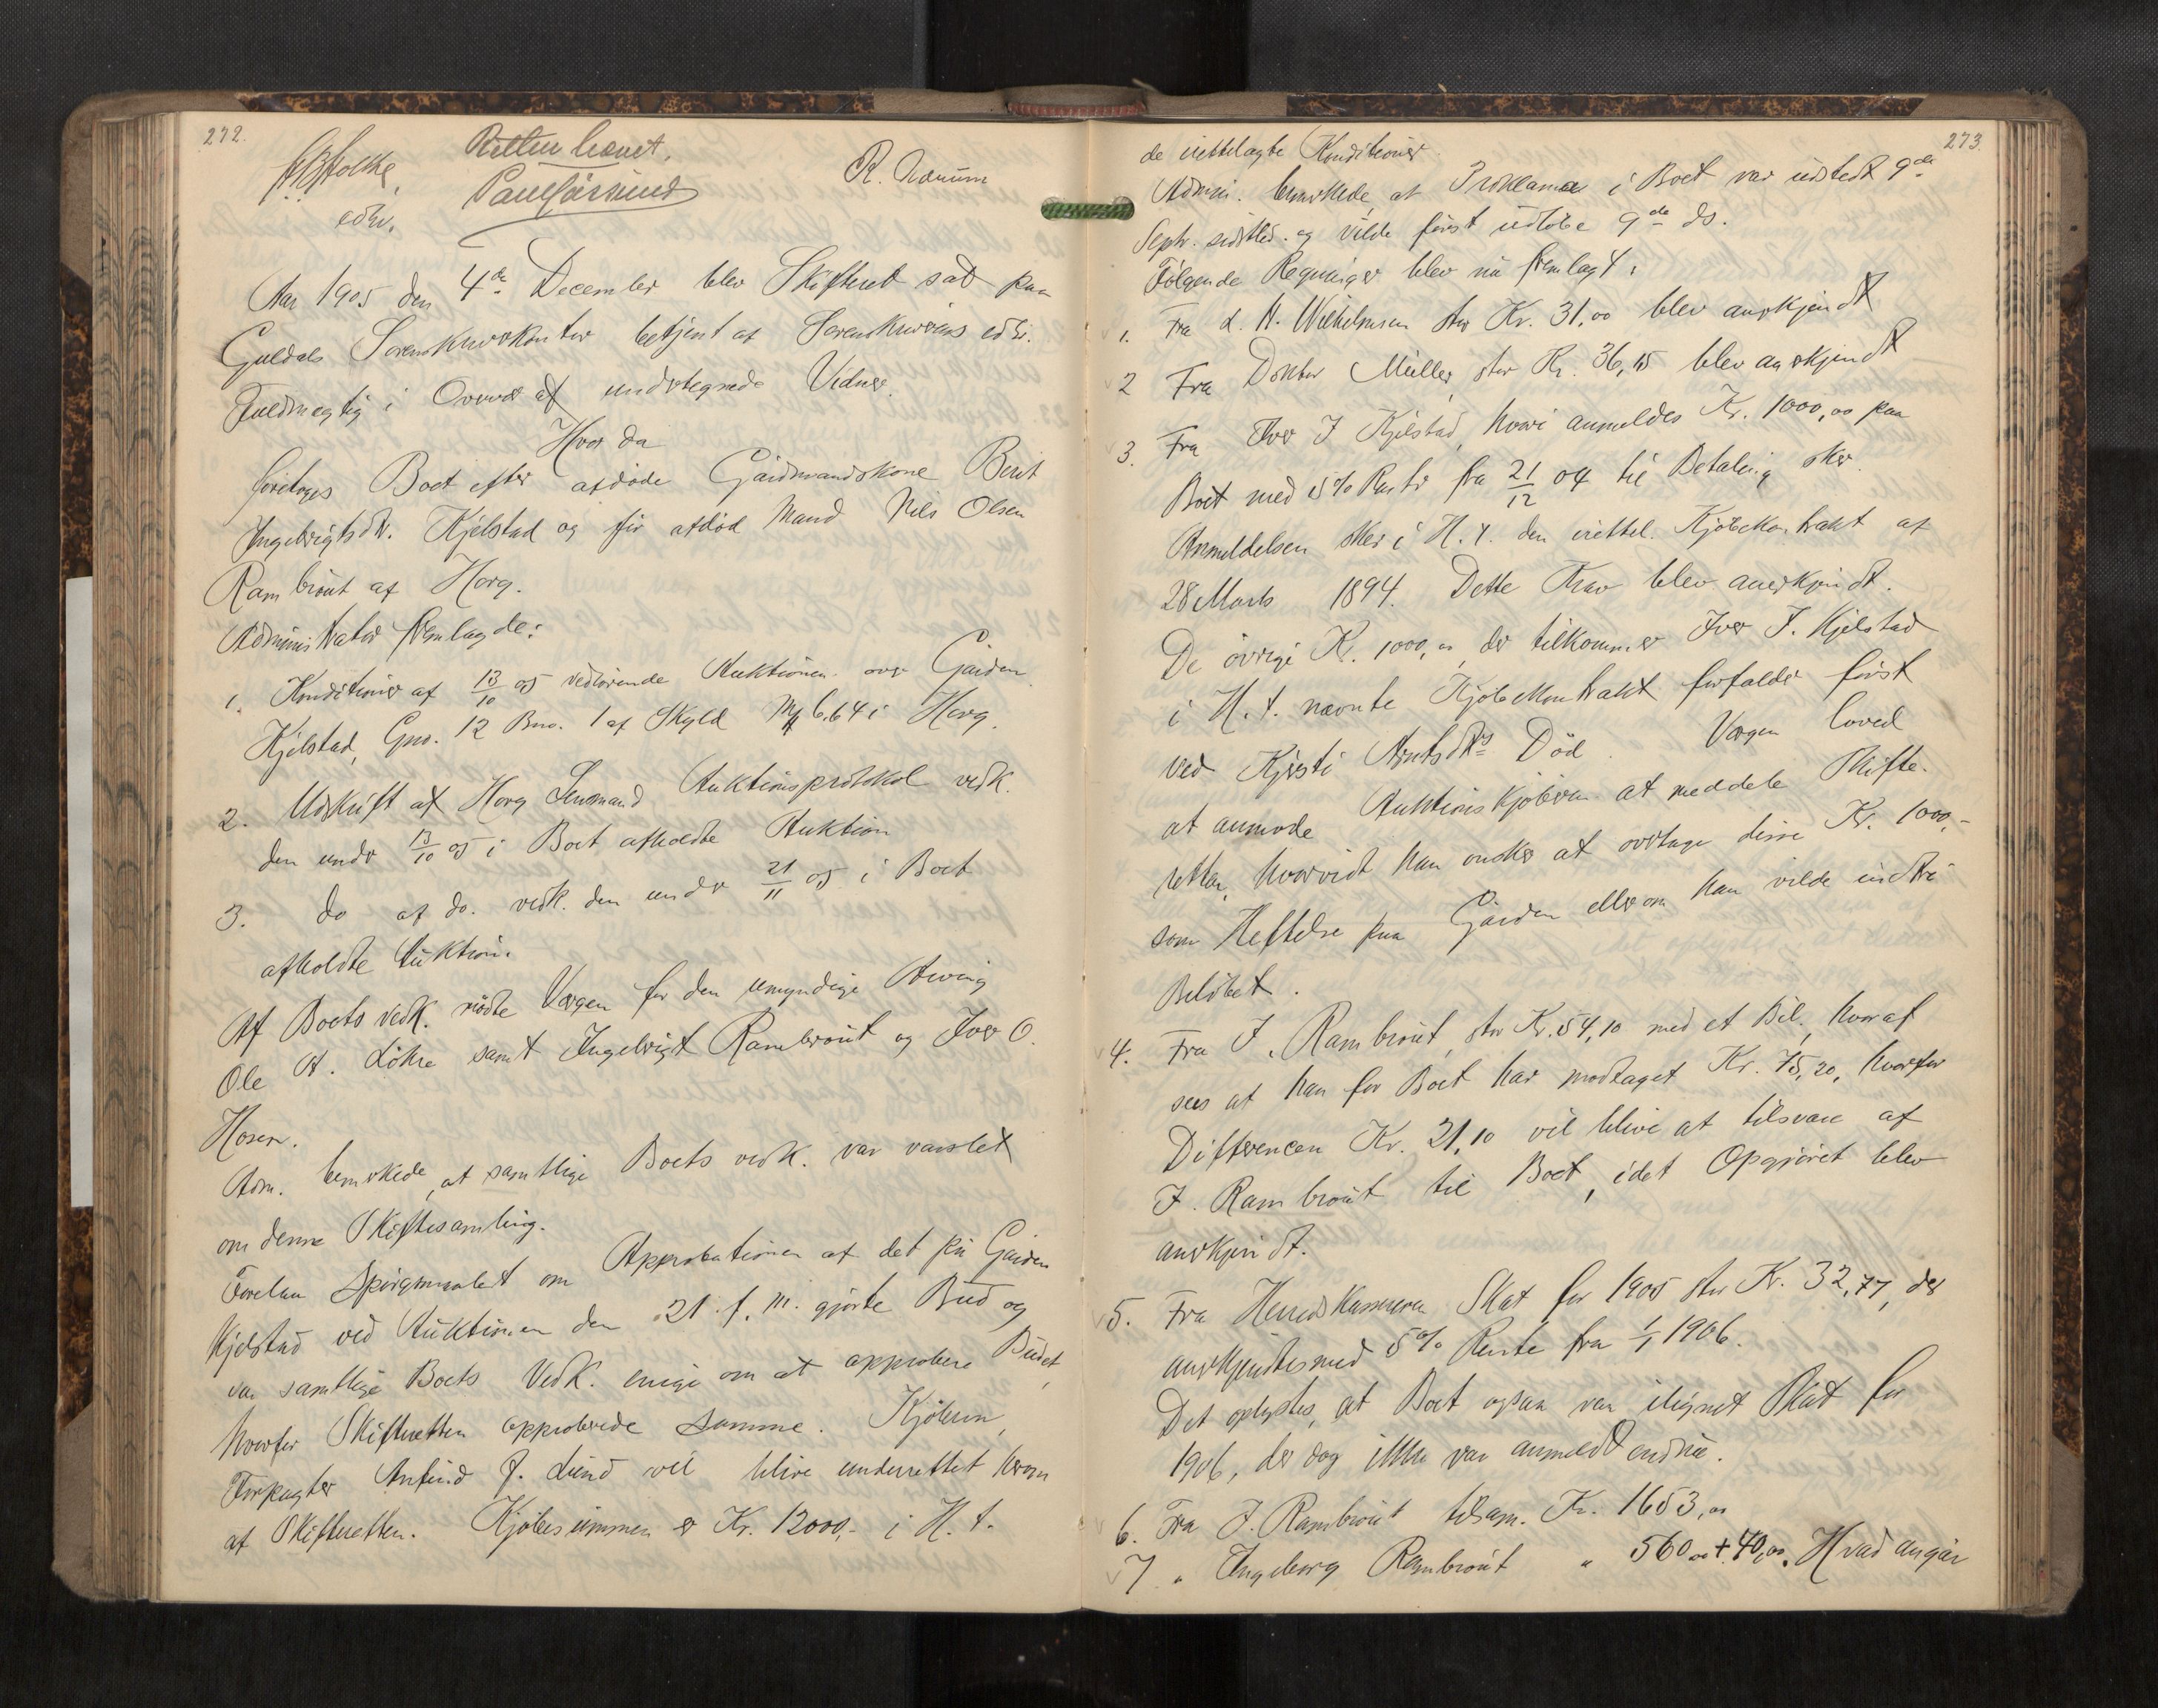 272.
Retten hævet.
R. Nærum
edsv.
Aar 1905 den 4de December blev Skifteret sat paa
Guldals Sorenskriverkontor betjent af Sorenskriverens edsv.
Fuldmægtig i Overvær af undertegnede Vidner.
Hvor da
foretoges Boet efter afdøde Gaardmandskone Berit
Ingebrigtsdtr. Kjelstad og før afdød Mand Nils Olsen
Rambraut af Horg.
Administrator fremlagde:
1. Konditioner af 13/10 05 vedrørende Auktionen over Gaarden
Kjelstad, Gno. 12 Bno. 1 af Skyld Mk 6.64 i Horg.
2. Udskrift af Horg Lensmand Auktionsprotokol vedk.
den under 13/10 05 i Boet afholdte Auktion
3. do af do. vedk. den under 21/11 05 i Boet
afholdte Auktion.
Af Boets vedk. mødte Værgen for den umyndige Arving
Ole A. Løhre samt Ingebrigt Rambraut og Iver O.
Hosen.
Adm. bemærkede, at samtlige Boets vedk. var varslet
om denne Skiftesamling.
Forelaa Spørgsmaalet om Approbationen af det på Gaarden
Kjelstad ved Auktionen den 21 f. m. gjorte Bud og
var samtlige Boets Vedk. enige om at approbere Budet,
hvorfor Skifteretten approberede samme. Kjøberen,
Forpagter Anfind J. Lund vil blive underrettet herom
af Skifteretten. Kjøbesummen er Kr. 12000,- i H. t.
273.
de irettelagte Konditioner.
Admin. bemærkede, at Proklama i Boet var udstedt 9de
Septr. sidstled. og vilde først udløbe 9de ds.
Følgende Regninger blev nu fremlagt:
1. Fra L. A. Wilhelmsen stor Kr. 31,00 blev anerkjendt
2 Fra Doktor Müller, stor Kr. 36,15 blev anerkjendt
3. Fra Iver I Kjelstad, hvori anmeldes Kr. 1000,00 paa
Boet med 5% Rente fra 21/12 04 til Betaling sker.
Anmeldelsen sker i H. t. den irettel. Kjøbekontrakt af
28 Marts 1894. Dette Krav blev anerkjendt.
De øvrige Kr. 1000,00, der tilkommer Iver I. Kjelstad
i H. t. nævnte Kjøbekontrakt forfalder først
ved Kjersti Arntsdtrs Død. Værgen loved
at anmode Auktionskjøberen at meddele Skifte-
retten, hvorvidt han ønsker at overtage disse Kr. 1000,-
som Heftelse paa Gaarden eller om han vilde indfri
Beløbet.
4. Fra I. Rambraut, stor Kr. 54,10 med et Bil., hvoraf
sees at han for Boet har modtaget Kr. 75,20, hvorfor
Differencen Kr. 21,10 vil blive at tilsvare af
I. Rambraut til Boet, idet Opgjøret blev
anerkjendt.
5. Fra Herredskassereren Skat for 1905 stor Kr. 32,77, der
anerkjendtes med 5% Rente fra 1/1 1906.
Det oplystes, at Boet ogsaa var ilignet Skat for
1906, der dog ikke var anmeldt endnu.
6. Fra I. Rambraut tilsam. Kr. 1653,00
7 „ Ingeborg Rambraut „ 560,00 + 40,00. Hvad angår